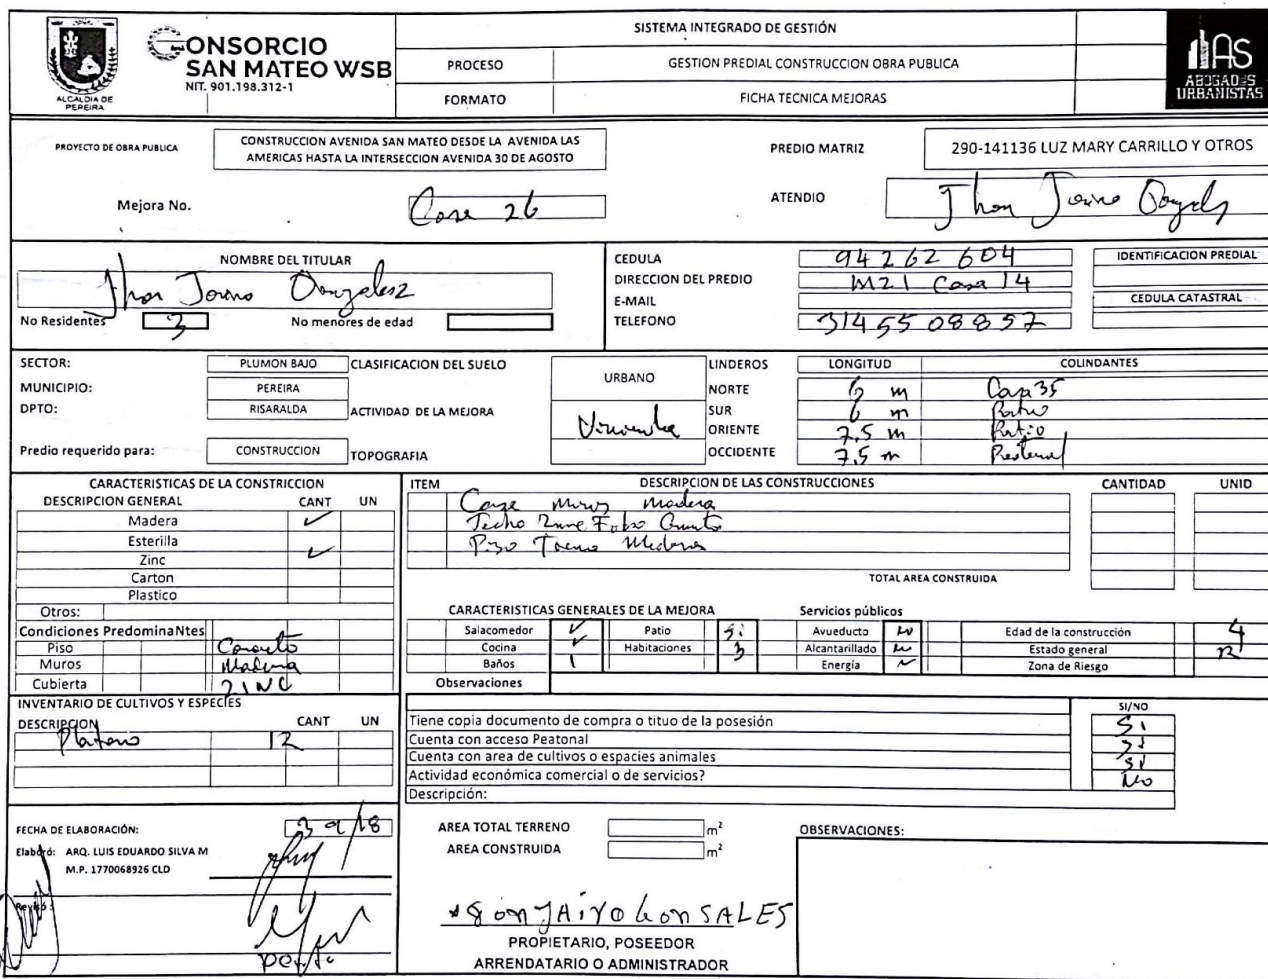 ALCALDIA DE
PEREIRA
CONSORCIO
SAN MATEO WSB
NIT. 901.198.312-1
SISTEMA INTEGRADO DE GESTIÓN
PROCESO GESTION PREDIAL CONSTRUCCION OBRA PUBLICA
FORMATO FICHA TECNICA MEJORAS
AS
ABOGADOS
URBANISTAS
PROYECTO DE OBRA PUBLICA
CONSTRUCCION AVENIDA SAN MATEO DESDE LA AVENIDA LAS
AMERICAS HASTA LA INTERSECCION AVENIDA 30 DE AGOSTO
PREDIO MATRIZ 290-141136 LUZ MARY CARRILLO Y OTROS
Mejora No. Casa 26
ATENDIO Jhon
NOMBRE DEL TITULAR
Jhon Gonzalez
No Residentes 3 No menores de edad
CEDULA 94262604
DIRECCION DEL PREDIO M21 Casa 14
E-MAIL
TELEFONO 3145508857
IDENTIFICACION PREDIAL
CEDULA CATASTRAL
SECTOR: PLUMON BAJO CLASIFICACION DEL SUELO URBANO
MUNICIPIO: PEREIRA
DPTO: RISARALDA ACTIVIDAD DE LA MEJORA Vivienda
Predio requerido para: CONSTRUCCION TOPOGRAFIA
LINDEROS LONGITUD COLINDANTES
NORTE 6 m Casa 35
SUR 6 m Patio
ORIENTE 7,5 m Patio
OCCIDENTE 7,5 m Peatonal
CARACTERISTICAS DE LA CONSTRICCION
DESCRIPCION GENERAL CANT UN
Madera ✓
Esterilla
Zinc ✓
Carton
Plastico
Otros:
Condiciones PredominaNtes
Piso Concreto
Muros Madera
Cubierta ZINC
ITEM DESCRIPCION DE LAS CONSTRUCCIONES CANTIDAD UNID
Casa Muros Madera
Techo
Piso Madera
TOTAL AREA CONSTRUIDA
CARACTERISTICAS GENERALES DE LA MEJORA Servicios públicos
Salacomedor ✓ Patio Si Avueducto Edad de la construcción 4
Cocina ✓ Habitaciones 3 Alcantarillado Estado general R
Baños 1 Energía Zona de Riesgo
Observaciones
INVENTARIO DE CULTIVOS Y ESPECIES
DESCRIPCION CANT UN
Platano 12
SI/NO
Tiene copia documento de compra o tituo de la posesión Si
Cuenta con acceso Peatonal Si
Cuenta con area de cultivos o espacies animales Si
Actividad económica comercial o de servicios? No
Descripción:
FECHA DE ELABORACIÓN:
Elaboró: ARQ. LUIS EDUARDO SILVA M
M.P. 1770068926 CLD
Revisó:
perito
AREA TOTAL TERRENO m²
AREA CONSTRUIDA m²
JAiro GonSALES
PROPIETARIO, POSEEDOR
ARRENDATARIO O ADMINISTRADOR
OBSERVACIONES: